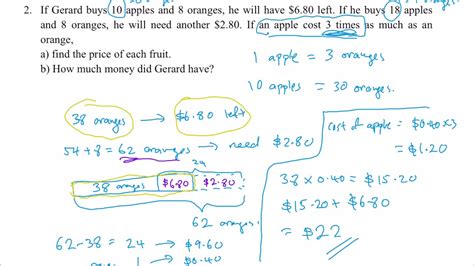 2. If Gerard buys 10 apples and 8 oranges, he will have $6.80 left. If he buys 18 apples
and 8 oranges, he will need another $2.80. If an apple cost 3 times as much as an
orange,
a) find the price of each fruit.
b) How much money did Gerard have?
1 apple = 3 oranges
10 apples = 30 oranges.
38 oranges → $6.80 left
54 + 8 = 62 oranges → need $2.80
24
38 oranges $6.80 $2.80
62 oranges
62 - 38 = 24 → $9.60
1 → $0.40
cost of apple = $0.40 × 3
= $1.20
38 × 0.40 = $15.20
$15.20 + $6.80
= $22